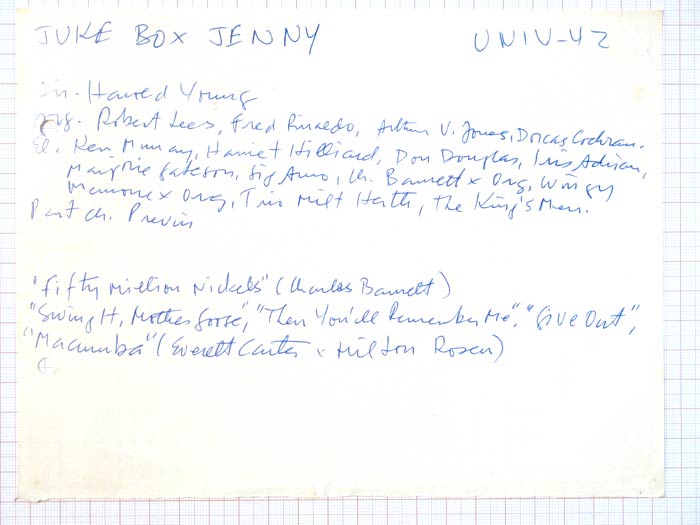 JUKE BOX JENNY UNIV-42
Dir. Harold Young
Arg. Robert Lees, Fred Rinaldo, Arthur V. Jones, Dorcas Cochran.
El. Ken Murray, Harriet Hilliard, Don Douglas, Iris Adrian,
Marjorie Gateson, Sig Arno, Ch. Barnett x Orq, Wingy
Mannone x Orq, Trio Milt Herth, The King's Men.
Part Ch. Previn
"Fifty Million Nickels" (Charles Barnett)
"Swing It, Mother Goose", "Then You'll Remember Me", "Give Out",
"Macumba" (Everett Carter x Milton Rosen)